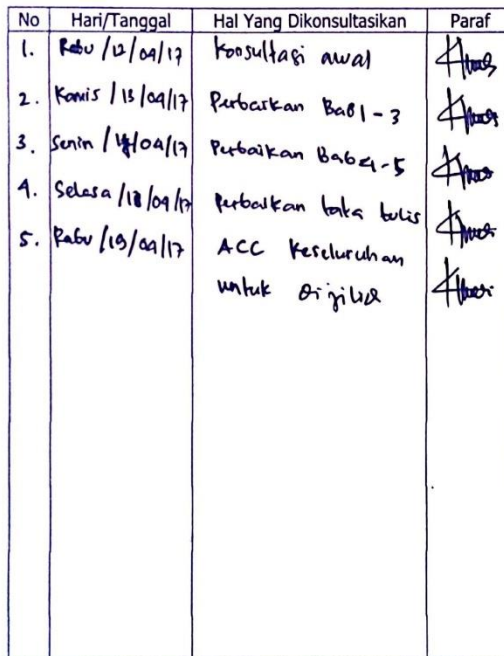 No Hari/Tanggal Hal Yang Dikonsultasikan Paraf
1. Rabu /12/04/17 Konsultasi awal
2. Kamis /13/04/17 Perbaikan Bab 1-3
3. Senin /17/04/17 Perbaikan Bab 4-5
4. Selasa /18/04/17 Perbaikan tata tulis
5. Rabu /19/04/17 ACC Keseluruhan
untuk dijilid